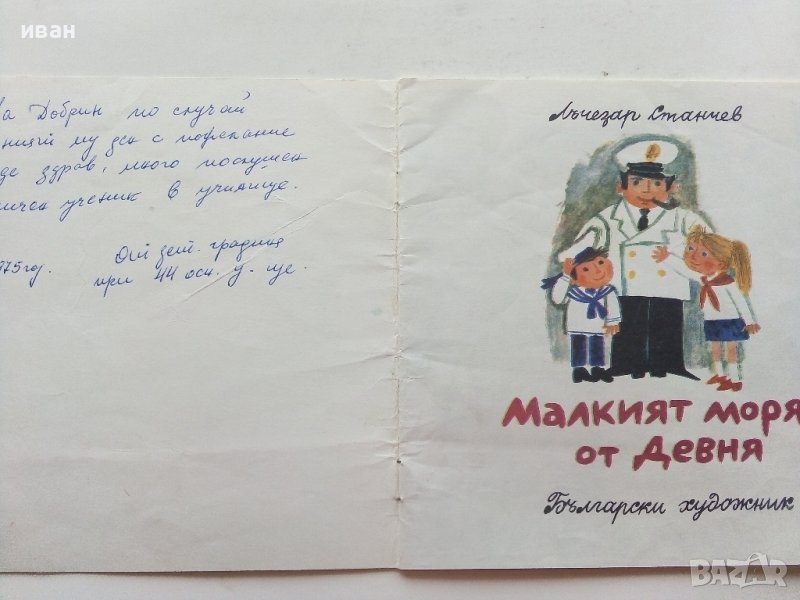 иван
На Добрин по случай
му ден с пожелание
здрав, много послушен
ученик в училище.
975 год.
От дет. градина
при 44 осн. у-ще.
Лъчезар Станчев
Малкият моря
от Девня
Български художник
BAZAR